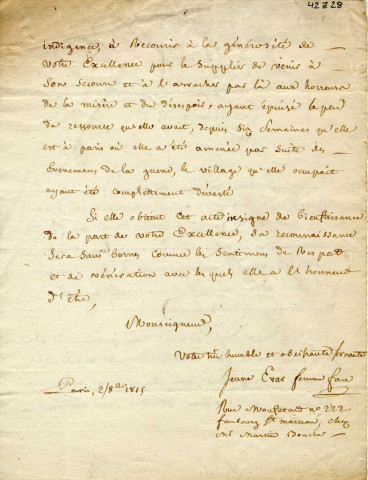 42728
indigence, à Recourir à la générosité de
Votre Excellence pour le Supplier de venir à
Son Secours et à l'arracher par là aux horreurs
de la misère et du désespoir, ayant épuisé le peu
de ressource qu'elle avait, depuis Six Semaines qu'elle
est à paris où elle a été amenée par suite des
Evénemens de la guerre, le village qu'elle occupait
ayant été complettement dévasté
Si elle obtient cet acte insigne de bienfaisance
de la part de votre Excellence, Sa reconnaissance
Sera Sans bornes comme les Sentimens de Respect
et de vénération avec lesquels elle a l'honneur
d'être,
Monseigneur,
Votre très humble et obéissante Servante
Jeanne femme
Paris, 2/8bre 1815
Rue Mouffetard no 222
faubourg St marceau, chez
Martin